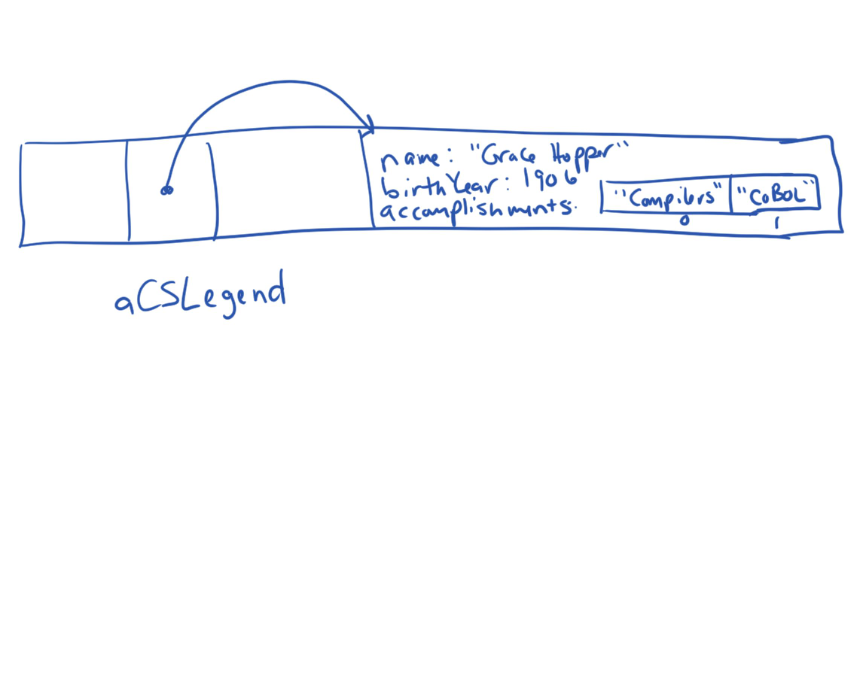 name: "Grace Hopper"
birthYear: 1906
accomplishments: "Compilers" "COBOL"
0 1
aCSLegend